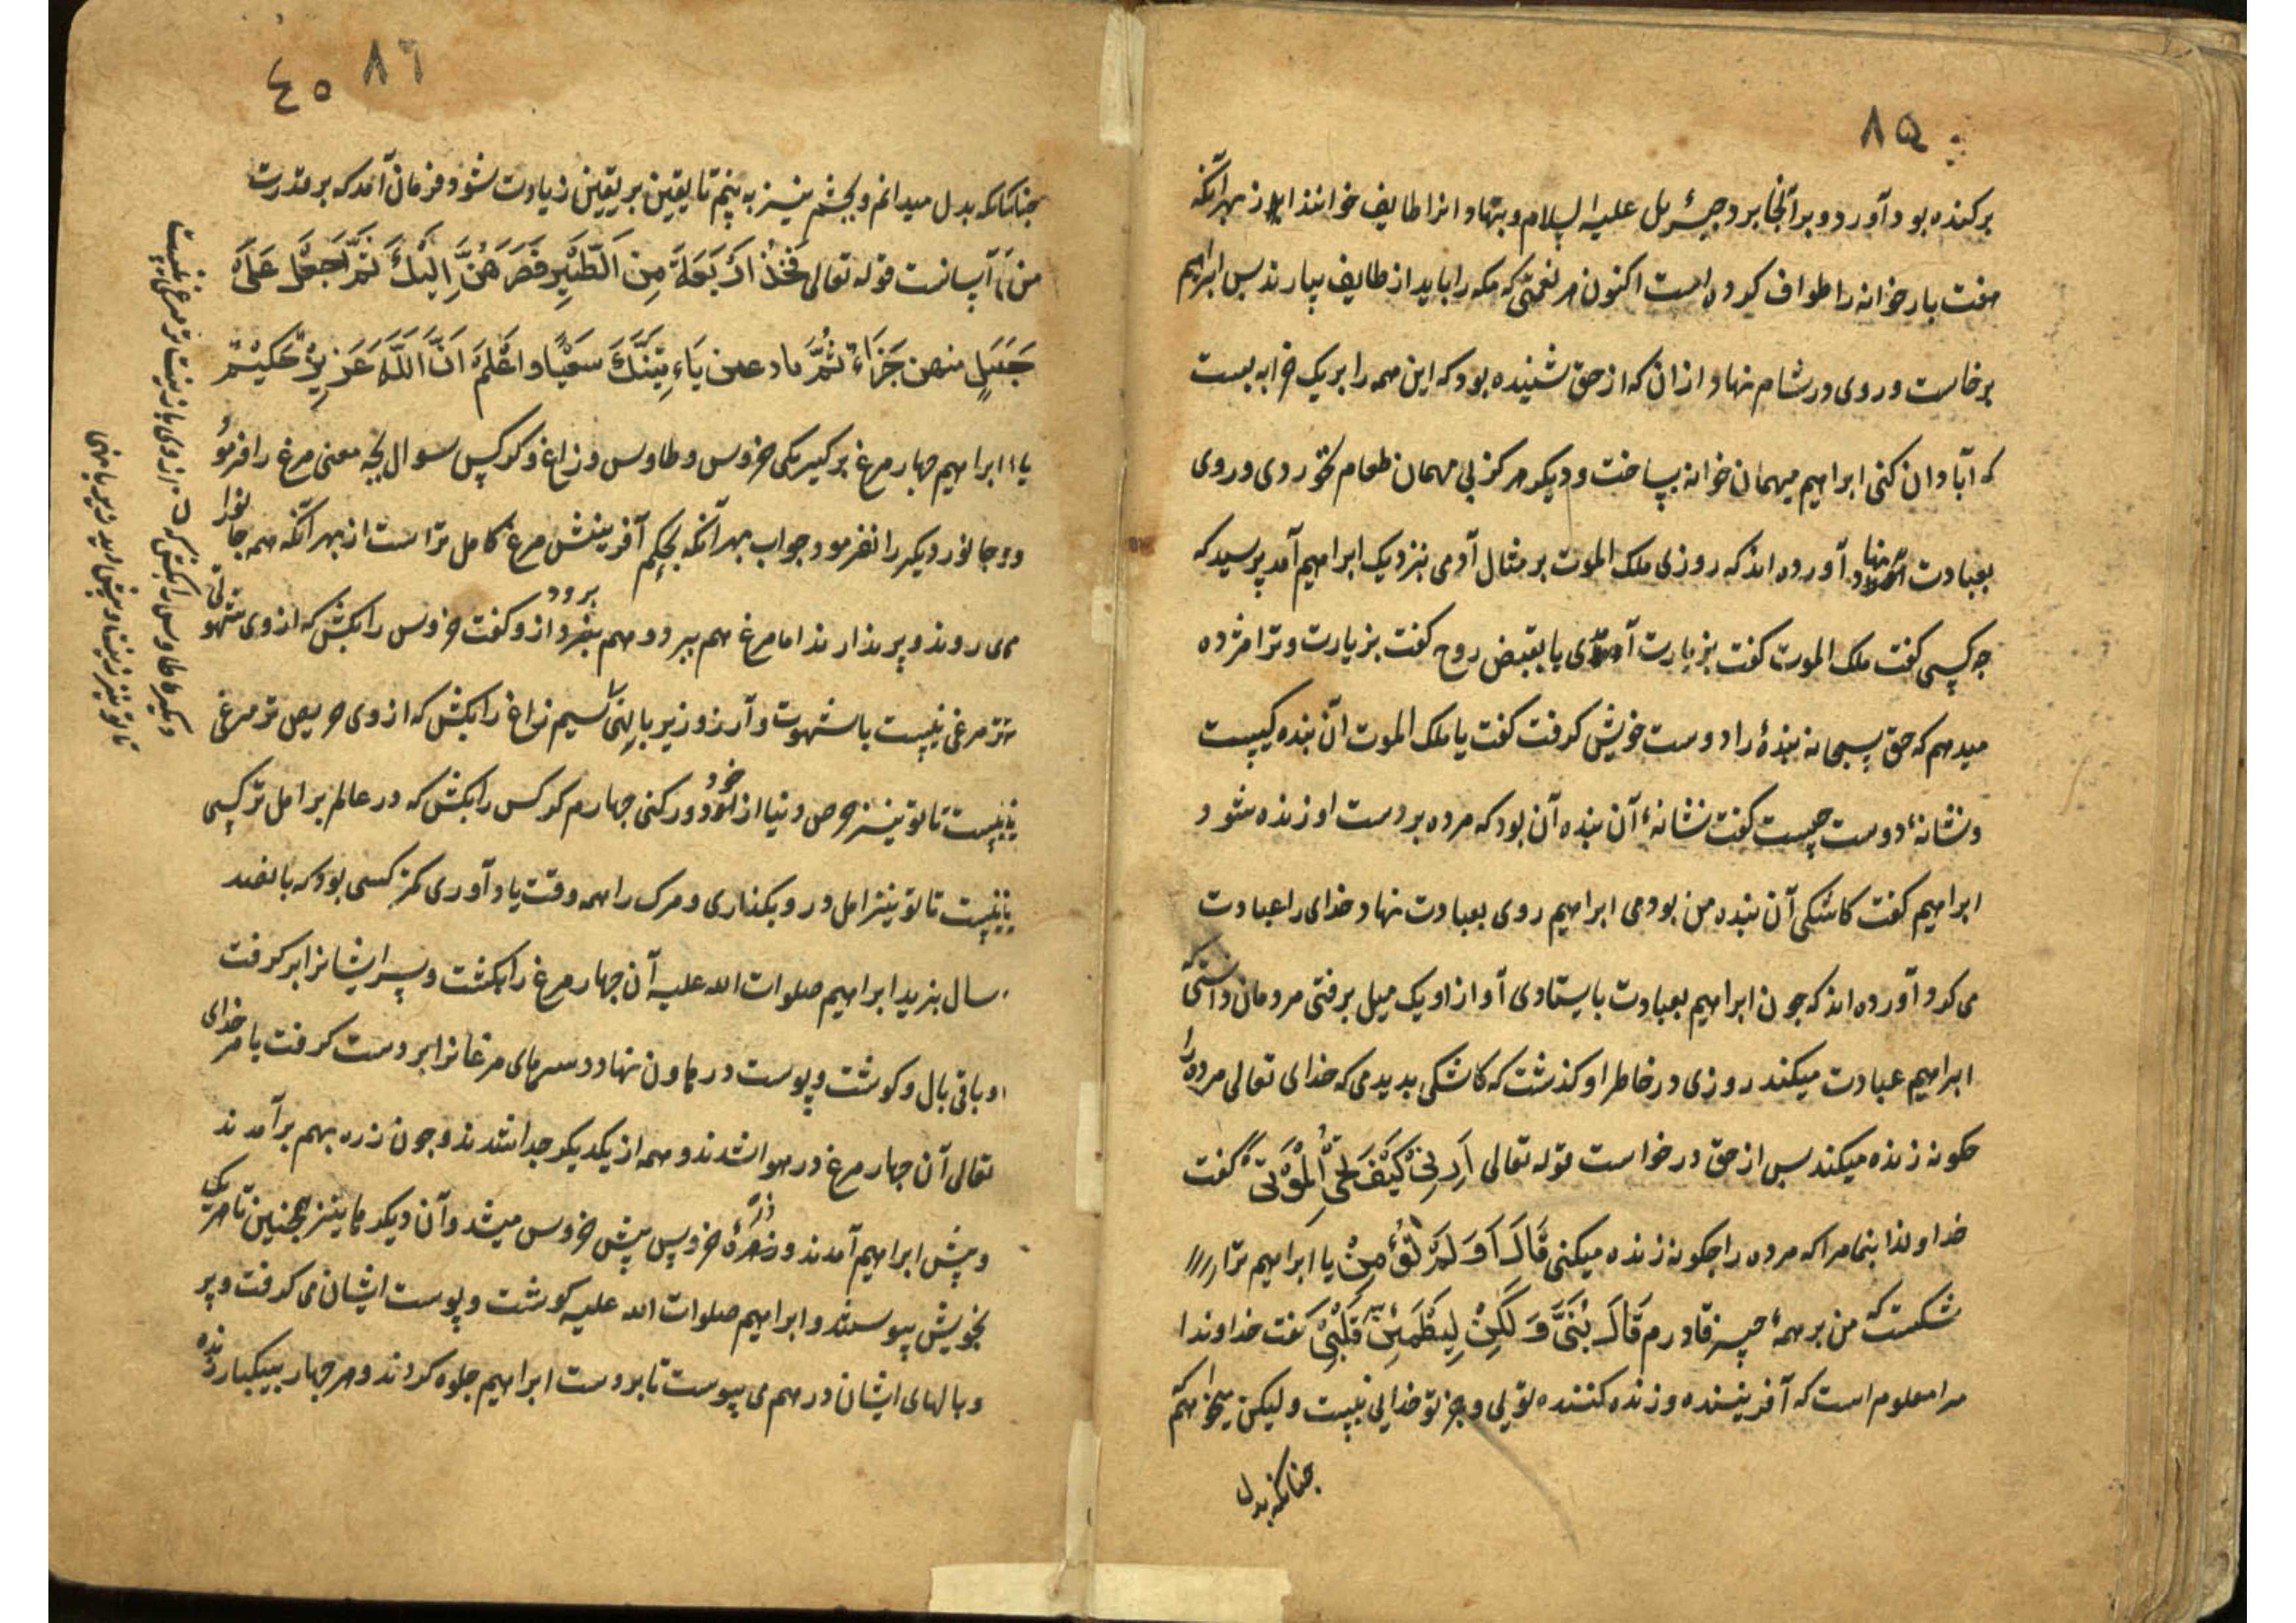 ۸۵
برکنده بود آورد و برآنجا برد جبرئیل علیه السلام و بنهاد انرا طایف خوانند از بهر آنکه
هفت بار خوانه را طواف کرده است اکنون هر نعمتی که مکه را باید از طایف بیارند بس ابراهیم
برخاست و روی در شام نهاد از ان که از حق شنیده بود که این همه را بر یک خرابه بست
که آبادان کنی ابراهیم میهمان خوانه بساخت و دیکر هرکز بی مهمان طعام نخوردی و روی
بعبادت نهاد آورده اند که روزی ملک الموت بر مثال آدمی بنزدیک ابراهیم آمد پرسید که
جه کسی کفت ملک الموت کفت بزیارت آمدی یا بقبض روح کفت بزیارت و ترا مژده
میدهم که حق سبحانه بندۀ را دوست خویش کرفت کفت یا ملک الموت آن بنده کیست
و نشانۀ دوست چیست کفت نشانۀ آن بنده آن بود که مرده بر دست او زنده شود
ابراهیم کفت کاشکی آن بنده من بودمی ابراهیم روی بعبادت نهاد خدای را عبادت
می کرد آورده اند که جون ابراهیم بعبادت بایستادی آواز او یک میل برفتی مردمان دانستی که
ابراهیم عبادت میکند روزی در خاطر او کذشت که کاشکی بدیدمی که خدای تعالی مرده را
جکونه زنده میکند بس از حق درخواست قوله تعالی اَرِنِی کَیْفَ تُحْیِ الْمَوْتی کفت
خداوندا بنما مرا که مرده را جکونه زنده میکنی قَالَ اَوَ لَمْ تُؤْمِنْ یا ابراهیم ترا
شکست که من بر همۀ چیز قادرم قَالَ بَلَی وَ لَکِنْ لِیَطْمَئِنَّ قَلْبِی کفت خداوندا
مرا معلوم است که آفریننده و زنده کننده تویی و جز تو خدایی نیست و لیکن میخواهم که
جنانکه بدل
۸٦
٤٥
جنانکه بدل میدانم و بجشم نیز به بینم تا یقین بر یقین زیادت شود فرمان آمد که بر قدرت
من آسانست قوله تعالی فَخُذْ اَرْبَعَةَ مِنَ الطَّیْرِ فَصُرْهُنَّ اِلَیْكَ ثُمَّ اجْعَلْ عَلَی
جَبَلٍ منهن جَزَاءً ثُمَّ ادعهن یَاءِتِیَنَّكَ سَعْیًا و اعْلَمْ اَنَّ اللّٰهَ عَزِیزٌ حَکِیْمٌ
یا ابراهیم جهار مرغ برکیر یکی خروس و طاوس و زاغ و کرکس سوال بجه معنی مرغ را فرمود
و جانور دیکر را نفرمود جواب بهر آنکه بحکم آفرینش مرغ کامل تر است از بهر آنکه همه جانورا
می روند و پر ندارند اما مرغ هم بپرد و هم برود و کفت خروس را بکش که از وی شهوتی
تر مرغی نیست با شهوت و آرزو زیر با لهنی سیم زاغ را بکش که از وی حریص تر مرغی
نیست تا تو نیز حرص دنیا از خود دور کنی جهارم کرکس را بکش که در عالم بر امل تر کسی
نیست تا تو نیز امل دور بکذاری و مرک را همه وقت یاد آوری کمتر کسی بود که پانصد
سال بزید ابراهیم صلوات الله علیه آن جهار مرغ را بکشت و سر ایشانرا بر کرفت
و باقی بال و کوشت و پوست در هاون نهاد و سرهای مرغانرا بر دست کرفت بامر خدای
تعالی آن جهار مرغ در هوا شدند و همه از یکدیکر جدا شدند و جون ذره بهم برآمدند
و پیش ابراهیم آمدند و ذرۀ خروس پیش خروس میشد و آن دیکرها نیز همجنین تا هر یک
بخویش پیوستند و ابراهیم صلوات الله علیه کوشت و پوست ایشان می کرفت و پر
و بالهای ایشان درهم می پیوست تا بر دست ابراهیم جلوه کردند و هر جهار بیکبار زنده
دیکر طاوس را بکش که از وی با زینت تر مرغی نیست
تا تو نیز زینت دنیا